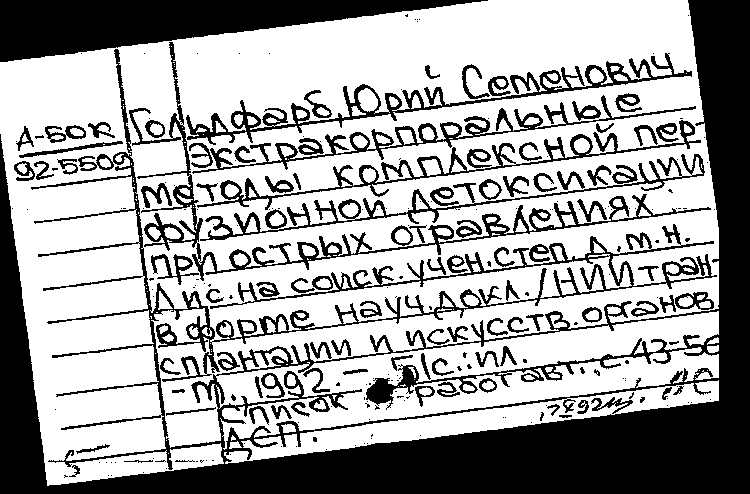 Гольдфарб, Юрий Семенович
А-БОК
92-5509
Экстракорпоральные
методы комплексной пер-
фузионной детоксикации
при острых отравлениях.
Дис. на соиск. учен. степ. д.м.н.
в форме науч. докл. / НИИ тран-
сплантации и искусств. органов
- М., 1992. - с.: ил.
Список работ авт.: с. 43-56
ДСП.